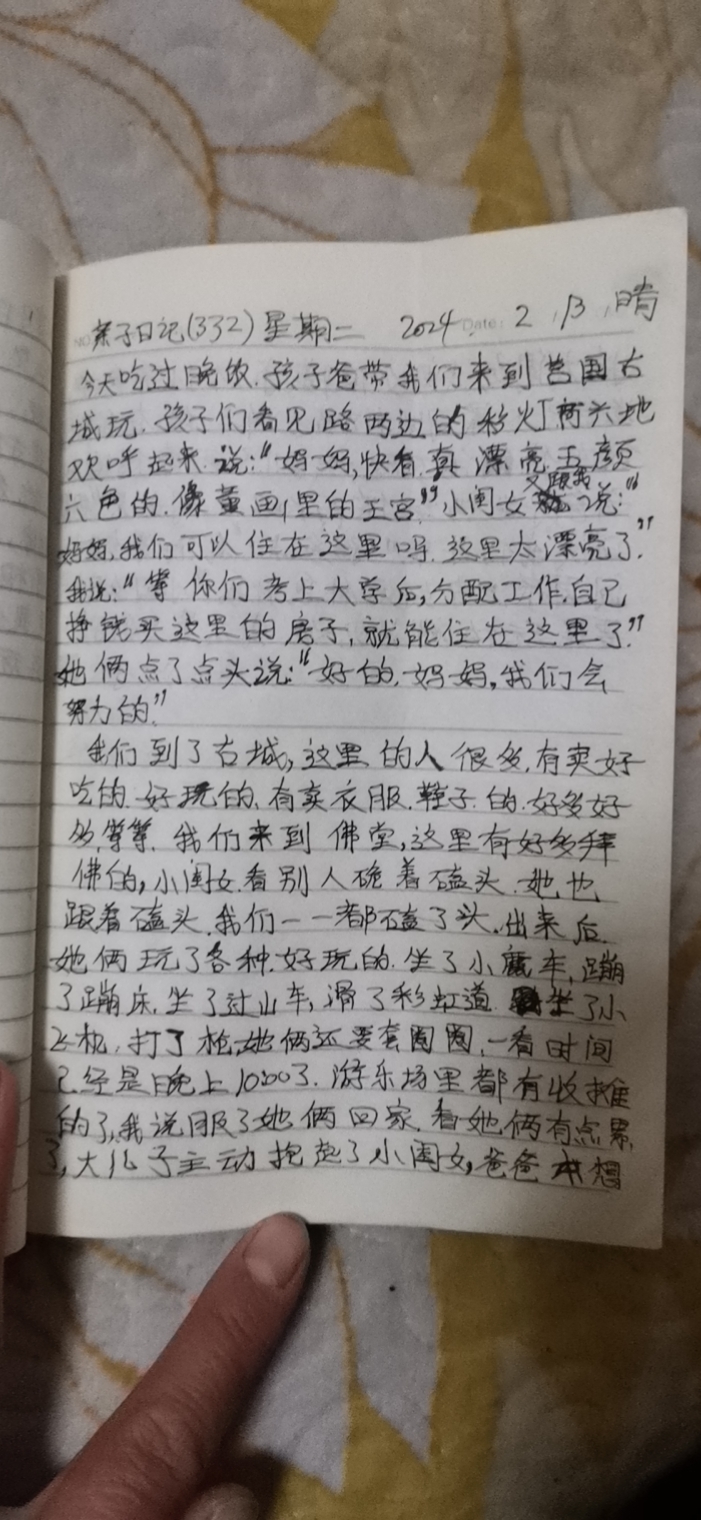 亲子日记(332)星期二 2024. Date: 2.13.晴
今天吃过晚饭.孩子爸带我们来到莒国古
城玩.孩子们看见路两边的彩灯高兴地
欢呼起来.说:“妈妈,快看.真漂亮.五颜
六色的.像童画里的王宫”小闺女又跟我说:“
妈妈.我们可以住在这里吗.这里太漂亮了.”
我说:“等你们考上大学后,分配工作.自己
挣钱买这里的房子,就能住在这里了.”
她俩点了点头说:“好的.妈妈,我们会
努力的.”
我们到了古城,这里的人很多.有卖好
吃的.好玩的.有卖衣服.鞋子.的.好多好
多,等等.我们来到佛堂,这里有好多拜
佛的,小闺女看别人跪着磕头.她也
跟着磕头.我们一一都磕了头.出来后.
她俩玩了各种.好玩的.坐了小 车,蹦
了蹦床.坐了过山车,滑了彩虹道.坐了小
飞机.打了枪,她俩还要套圈圈,一看时间
已经是晚上1000了.游乐场里都有收摊
的了,我说服了她俩回家.看她俩有点累
了,大儿子主动抱起了小闺女,爸爸本想